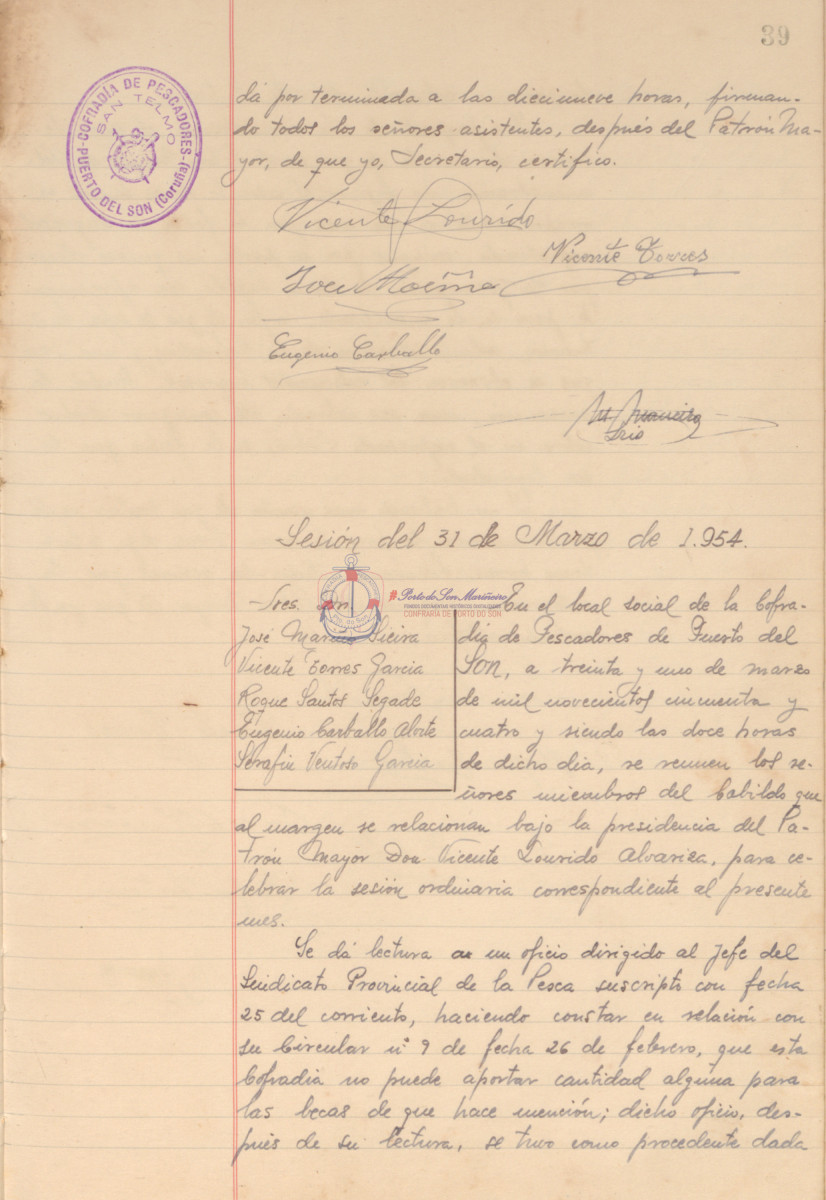 39
COFRADÍA DE PESCADORES
SAN TELMO
PUERTO DEL SON (Coruña)
dá por terminada a las diecinueve horas, firman-
do todos los señores asistentes, después del Patrón Ma-
yor, de que yo, Secretario, certifico.
Vicente Lourido
Vicente Torres
José
Eugenio Carballo
Srio
Sesión del 31 de Marzo de 1.954.
#Porto do Son Mariñeiro
FONDOS DOCUMENTAIS HISTÓRICOS DIXITALIZADOS
CONFRARÍA DE PORTO DO SON
-Sres. Don
José Sieira
Vicente Torres Garcia
Roque Santos Segade
Eugenio Carballo
Serafin Ventoso Garcia
En el local social de la Cofra-
día de Pescadores de Puerto del
SON, a treinta y uno de marzo
de mil novecientos cincuenta y
cuatro y siendo las doce horas
de dicho dia, se reunen los se-
ñores miembros del Cabildo que
al margen se relacionan bajo la presidencia del Pa-
trón Mayor Don Vicente Lourido Alvariza, para ce-
lebrar la sesión ordinaria correspondiente al presente
mes.
Se dá lectura a un oficio dirigido al Jefe del
Sindicato Provincial de la Pesca suscripto con fecha
25 del corriente, haciendo constar en relación con
su Circular nº 9 de fecha 26 de febrero, que esta
Cofradia no puede aportar cantidad alguna para
las becas de que hace mención; dicho oficio, des-
pués de su lectura, se tuvo como procedente dada